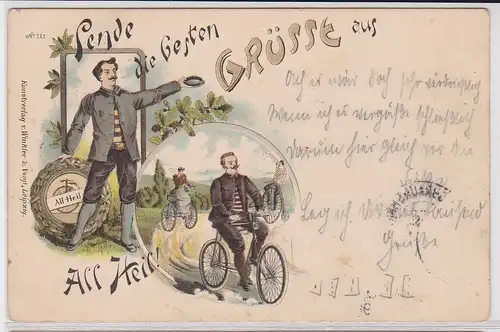 No 121
Sende
die besten
GRÜSSE aus
Kunstverlag v. Winkler & Voigt, Leipzig.
All-Heil
All Heil!
Ach es wär doch sehr verdrießlich
Wenn ich es vergäße schließlich
Darum hier gleich vor der
Leg ich Tausend
Grüße